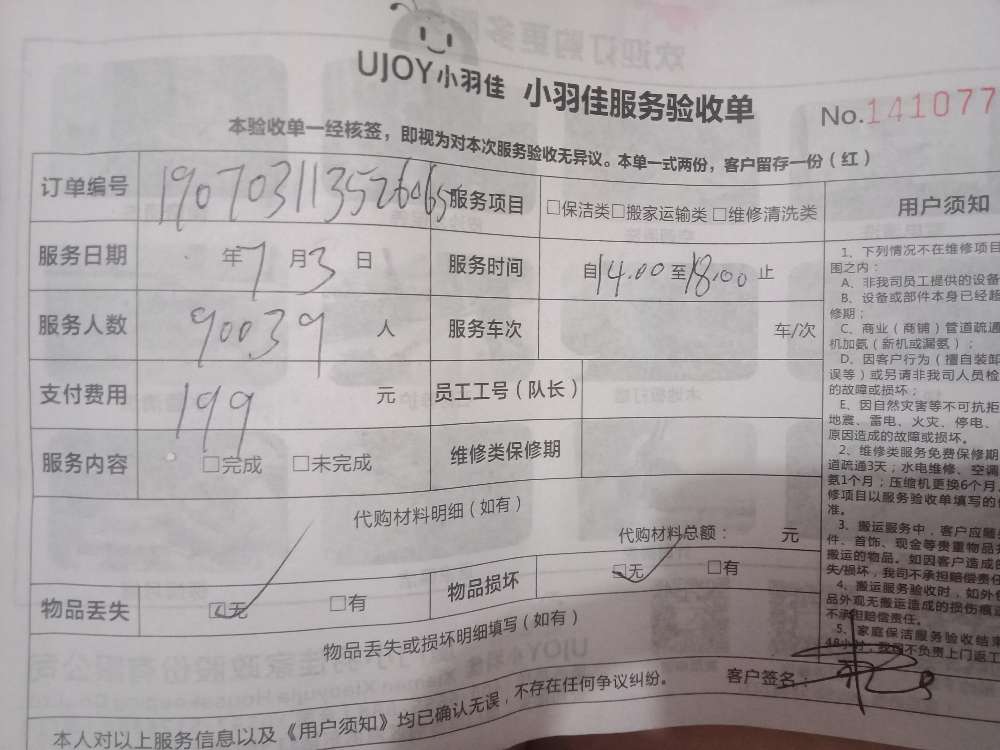 UJOY小羽佳 小羽佳服务验收单 No.141077
本验收单一经核签，即视为对本次服务验收无异议。本单一式两份，客户留存一份（红）
订单编号 服务项目 □保洁类□搬家运输类□维修清洗类
服务日期 年7月3日 服务时间 自14.00至18.00止
服务人数 90039 人 服务车次 车/次
支付费用 199 元 员工工号（队长）
服务内容 □完成 □未完成 维修类保修期
代购材料明细（如有）
代购材料总额： 元
物品丢失 ☑无 □有 物品损坏 ☑无 □有
物品丢失或损坏明细填写（如有）
客户签名：
本人对以上服务信息以及《用户须知》均已确认无误，不存在任何争议纠纷。
用户须知
1、下列情况不在维修项目
围之内：
A、非我司员工提供的设备
B、设备或部件本身已经超
修期；
C、商业（商铺）管道疏通
机加氨（新机或漏氨）；
D、因客户行为（擅自装卸
误等）或另请非我司人员检
的故障或损坏；
E、因自然灾害等不可抗拒
地震、雷电、火灾、停电、
原因造成的故障或损坏。
2、维修类服务免费保修期
道疏通3天；水电维修、空调
氨1个月；压缩机更换6个月。
修项目以服务验收单填写的
准。
3、搬运服务中，客户应随
件、首饰、现金等贵重物品
搬运的物品。如因客户造成的
失/损坏，我司不承担赔偿责任
4、搬运服务验收时，如外包
品外观无搬运造成的损伤痕
不承担赔偿责任。
5、家庭保洁服务验收结束
48小时，我司不负责上门返工